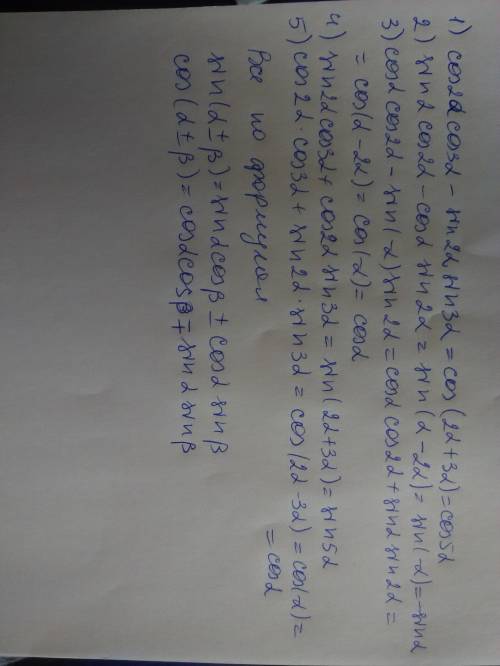 1) cos2α cos3α − sin2α sin3α = cos (2α+3α) = cos5α
2) sinα cos2α − cosα sin2α = sin(α−2α) = sin(−α) = −sinα
3) cosα cos2α − sin(−α) sin2α = cosα cos2α + sinα sin2α =
= cos(α−2α) = cos(−α) = cosα
4) sin2α cos3α + cos2α sin3α = sin(2α+3α) = sin5α
5) cos2α · cos3α + sin2α · sin3α = cos(2α−3α) = cos(−α) =
= cosα
Все по формулам
sin(α±β) = sinα cosβ ± cosα sinβ
cos(α±β) = cosα cosβ ∓ sinα sinβ